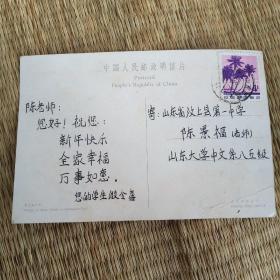 中國人民郵政明信片
Postcard
People's Republic of China
陈老师：
您好！祝您：
新年快乐
全家幸福
万事如意。
您的学生殷金磊
寄：山东省汶上县第一中学
陈景福（老师）
山东大学中文系八五级